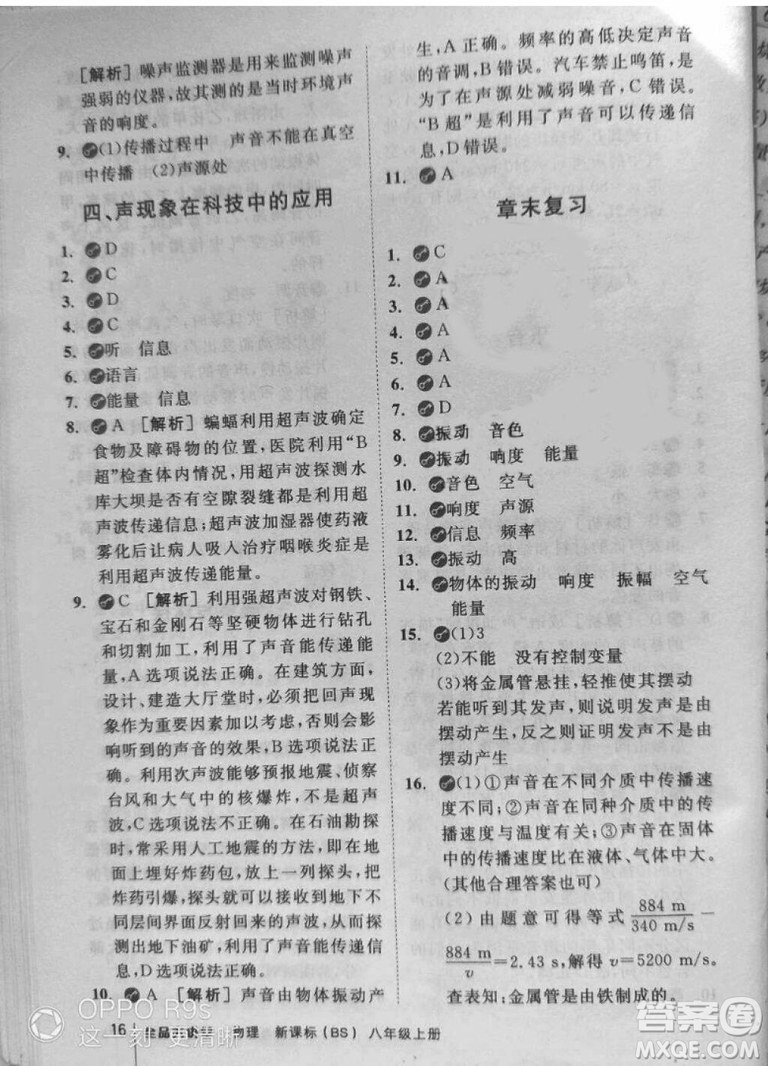 [解析]噪声监测器是用来监测噪声
强弱的仪器，故其测的是当时环境声
音的响度。
9. (1)传播过程中 声音不能在真空
中传播 (2)声源处
四、声现象在科技中的应用
1. D
2. C
3. D
4. C
5. 听 信息
6. 语言
7. 能量 信息
8. A [解析]蝙蝠利用超声波确定
食物及障碍物的位置，医院利用“B
超”检查体内情况，用超声波探测水
库大坝是否有空隙裂缝都是利用超
声波传递信息；超声波加湿器使药液
雾化后让病人吸入治疗咽喉炎症是
利用超声波传递能量。
9. C [解析]利用强超声波对钢铁、
宝石和金刚石等坚硬物体进行钻孔
和切割加工，利用了声音能传递能
量，A选项说法正确。在建筑方面，
设计、建造大厅堂时，必须把回声现
象作为重要因素加以考虑，否则会影
响听到的声音的效果，B选项说法正
确。利用次声波能够预报地震、侦察
台风和大气中的核爆炸，不是超声
波，C选项说法不正确。在石油勘探
时，常采用人工地震的方法，即在地
面上埋好炸药包，放上一列探头，把
炸药引爆，探头就可以接收到地下不
同层间界面反射回来的声波，从而探
测出地下油矿，利用了声音能传递信
息，D选项说法正确。
10. A [解析]声音由物体振动产
生，A正确。频率的高低决定声音
的音调，B错误。汽车禁止鸣笛，是
为了在声源处减弱噪音，C错误。
“B超”是利用了声音可以传递信
息，D错误。
11. A
章末复习
1. C
2. A
3. A
4. A
5. A
6. A
7. D
8. 振动 音色
9. 振动 响度 能量
10. 音色 空气
11. 响度 声源
12. 信息 频率
13. 振动 高
14. 物体的振动 响度 振幅 空气
能量
15. (1)3
(2)不能 没有控制变量
(3)将金属管悬挂，轻推使其摆动
若能听到其发声，则说明发声是由
摆动产生，反之则证明发声不是由
摆动产生
16. (1)①声音在不同介质中传播速
度不同；②声音在同种介质中的传
播速度与温度有关；③声音在固体
中的传播速度比在液体、气体中大。
(其他合理答案也可)
(2)由题意可得等式 884 m/340 m/s −
884 m/v = 2.43 s，解得 v=5200 m/s。
查表知：金属管是由铁制成的。
16 全品 物理 新课标(BS) 八年级上册
OPPO R9s
这一刻 更清晰
答案圈
MXQE.COM